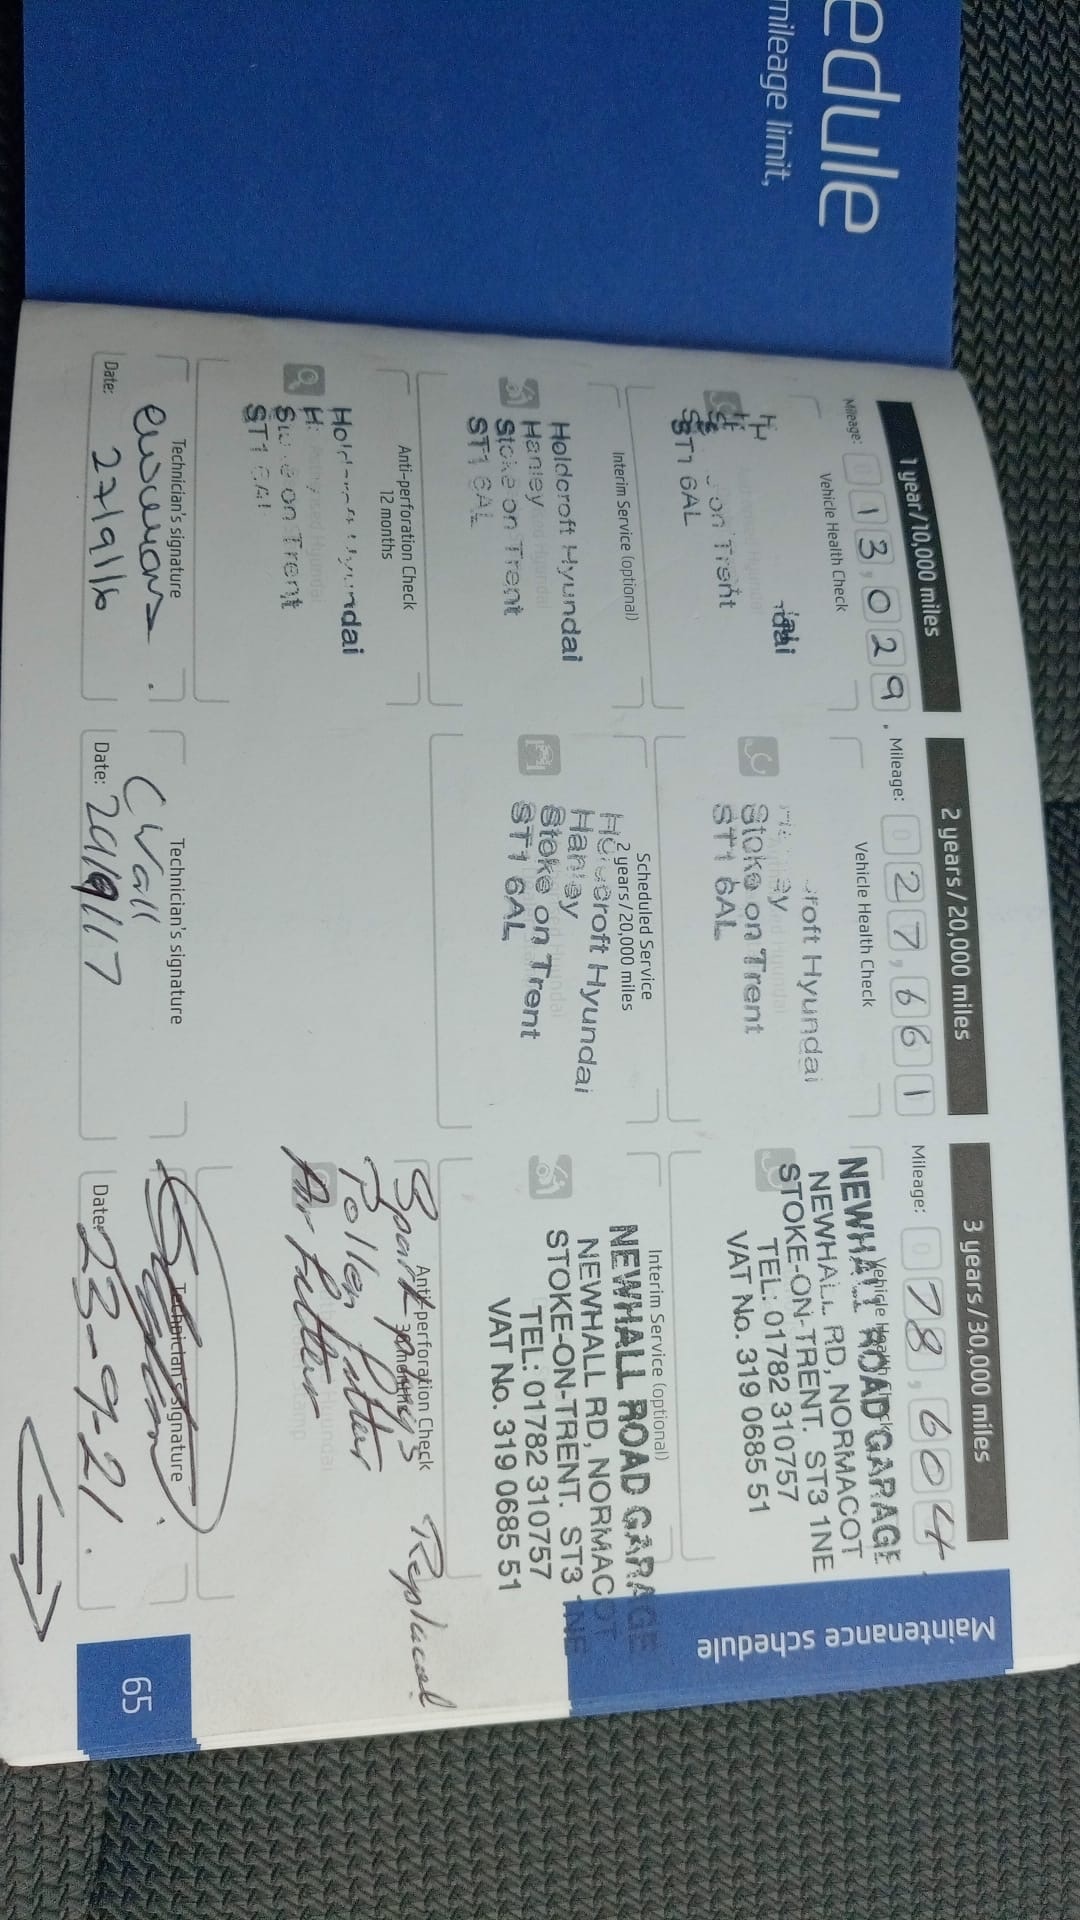 edule
mileage limit,
Maintenance schedule
1 year/10,000 miles
Mileage: 013,029
Vehicle Health Check
on Trent
ST1 6AL
Interim Service (optional)
Holdcroft Hyundai
Hanley
Stoke on Trent
ST1 6AL
Anti-perforation Check
12 months
Hyundai
on Trent
ST1 6AL
Technician's signature
Date: 27/9/16
2 years/20,000 miles
Mileage: 027,661
Vehicle Health Check
Hyundai
Stoke on Trent
ST1 6AL
Scheduled Service
2 years/20,000 miles
Holdcroft Hyundai
Hanley
Stoke on Trent
ST1 6AL
Technician's signature
C Wall
Date: 29/9/17
3 years/30,000 miles
Mileage: 078,604
Vehicle Health Check
NEWHALL ROAD GARAGE
NEWHALL RD, NORMACOT
STOKE-ON-TRENT. ST3 1NE
TEL: 01782 310757
VAT No. 319 0685 51
Interim Service (optional)
NEWHALL ROAD GARAGE
NEWHALL RD, NORMACOT
STOKE-ON-TRENT. ST3 1NE
TEL: 01782 310757
VAT No. 319 0685 51
Anti-perforation Check
Spark plugs Replaced
Pollen filter
Air filter
Technician's signature
Date: 23-9-21.
65